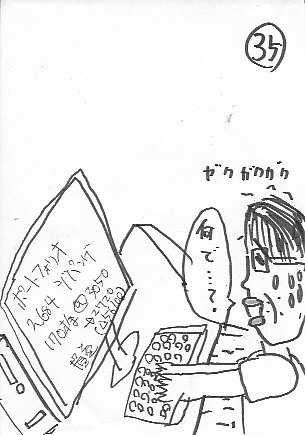 35
ガクガクガク
何で…?
ポートフォリオ
2684 ジパング
170株 @ 3050
→2730